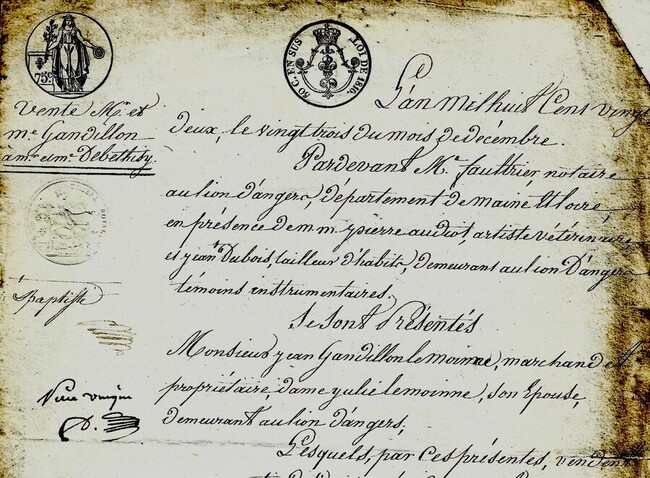 75c
50 C. EN SUS
LOI DE 1816.
Vente Mr. et
me. Gandillon
à mr. et me. Debethisy.
Baptiste
L'an Mil huit Cent vingt
deux, le vingt trois du mois de décembre.
Pardevant Me. fauttrier notaire
au lion d'angers, département de maine et loire,
en présence de m m. pierre audiot, artiste vétérinaire,
et jean Dubois, tailleur d'habits, demeurant au lion D'angers
témoins instrumentaires.
Se sont Présentés
Monsieur jean Gandillon lemoinne, marchand et
propriétaire, dame julie lemoinne, son Epouse,
demeurant au lion d'angers,
Lesquels, par ces présentes, vendent